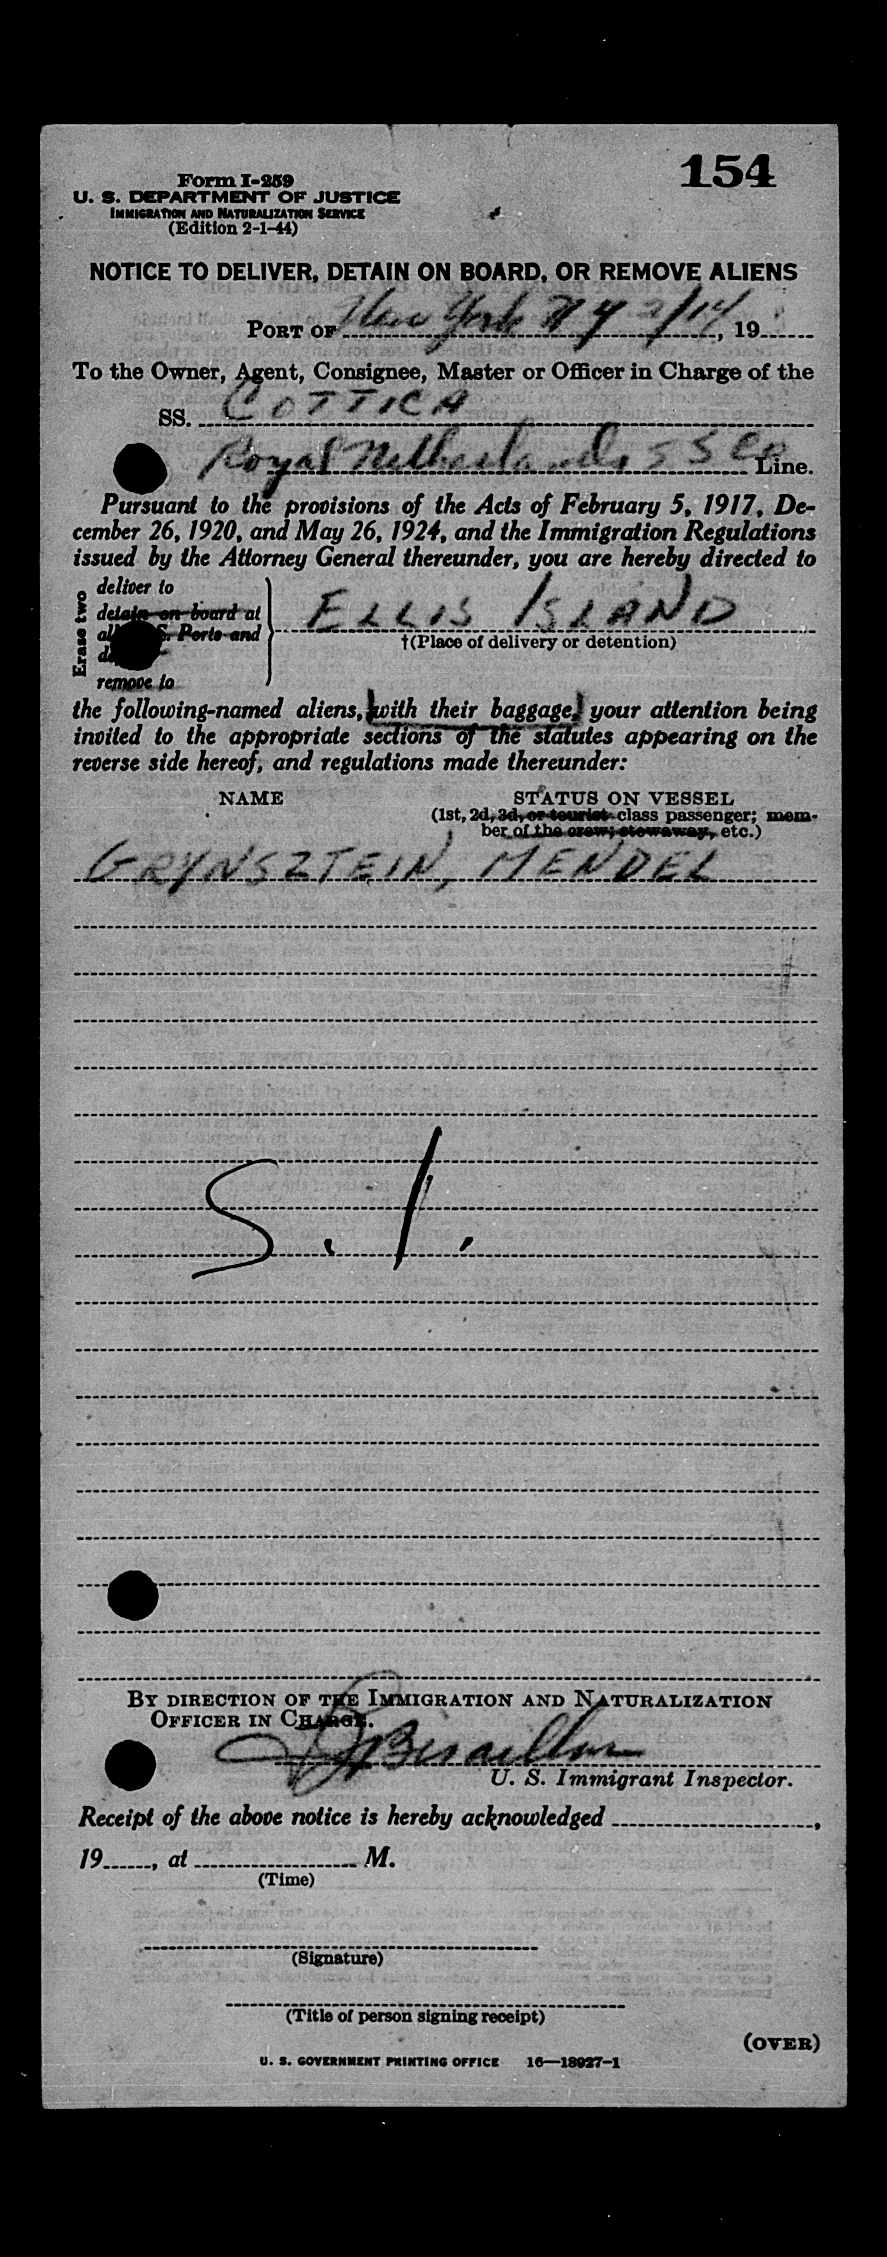 154
Form I-259
U. S. DEPARTMENT OF JUSTICE
IMMIGRATION AND NATURALIZATION SERVICE
(Edition 2-1-44)
NOTICE TO DELIVER, DETAIN ON BOARD, OR REMOVE ALIENS
PORT OF New York N Y 2/14, 19
To the Owner, Agent, Consignee, Master or Officer in Charge of the
SS. COTTICA
Royal Netherlands S S Co Line.
Pursuant to the provisions of the Acts of February 5, 1917, De-
cember 26, 1920, and May 26, 1924, and the Immigration Regulations
issued by the Attorney General thereunder, you are hereby directed to
Erase two
deliver to
detain on board at
Ports and
remove to
ELLIS ISLAND
†(Place of delivery or detention)
the following-named aliens, (with their baggage,) your attention being
invited to the appropriate sections of the statutes appearing on the
reverse side hereof, and regulations made thereunder:
NAME STATUS ON VESSEL
(1st, 2d, 3d, or tourist class passenger; mem-
ber of the crew; stowaway, etc.)
GRYNSZTEIN, MENDEL
S. I.
BY DIRECTION OF THE IMMIGRATION AND NATURALIZATION
OFFICER IN CHARGE.
U. S. Immigrant Inspector.
Receipt of the above notice is hereby acknowledged ,
19 , at M.
(Time)
(Signature)
(Title of person signing receipt)
(OVER)
U. S. GOVERNMENT PRINTING OFFICE 16—18927-1